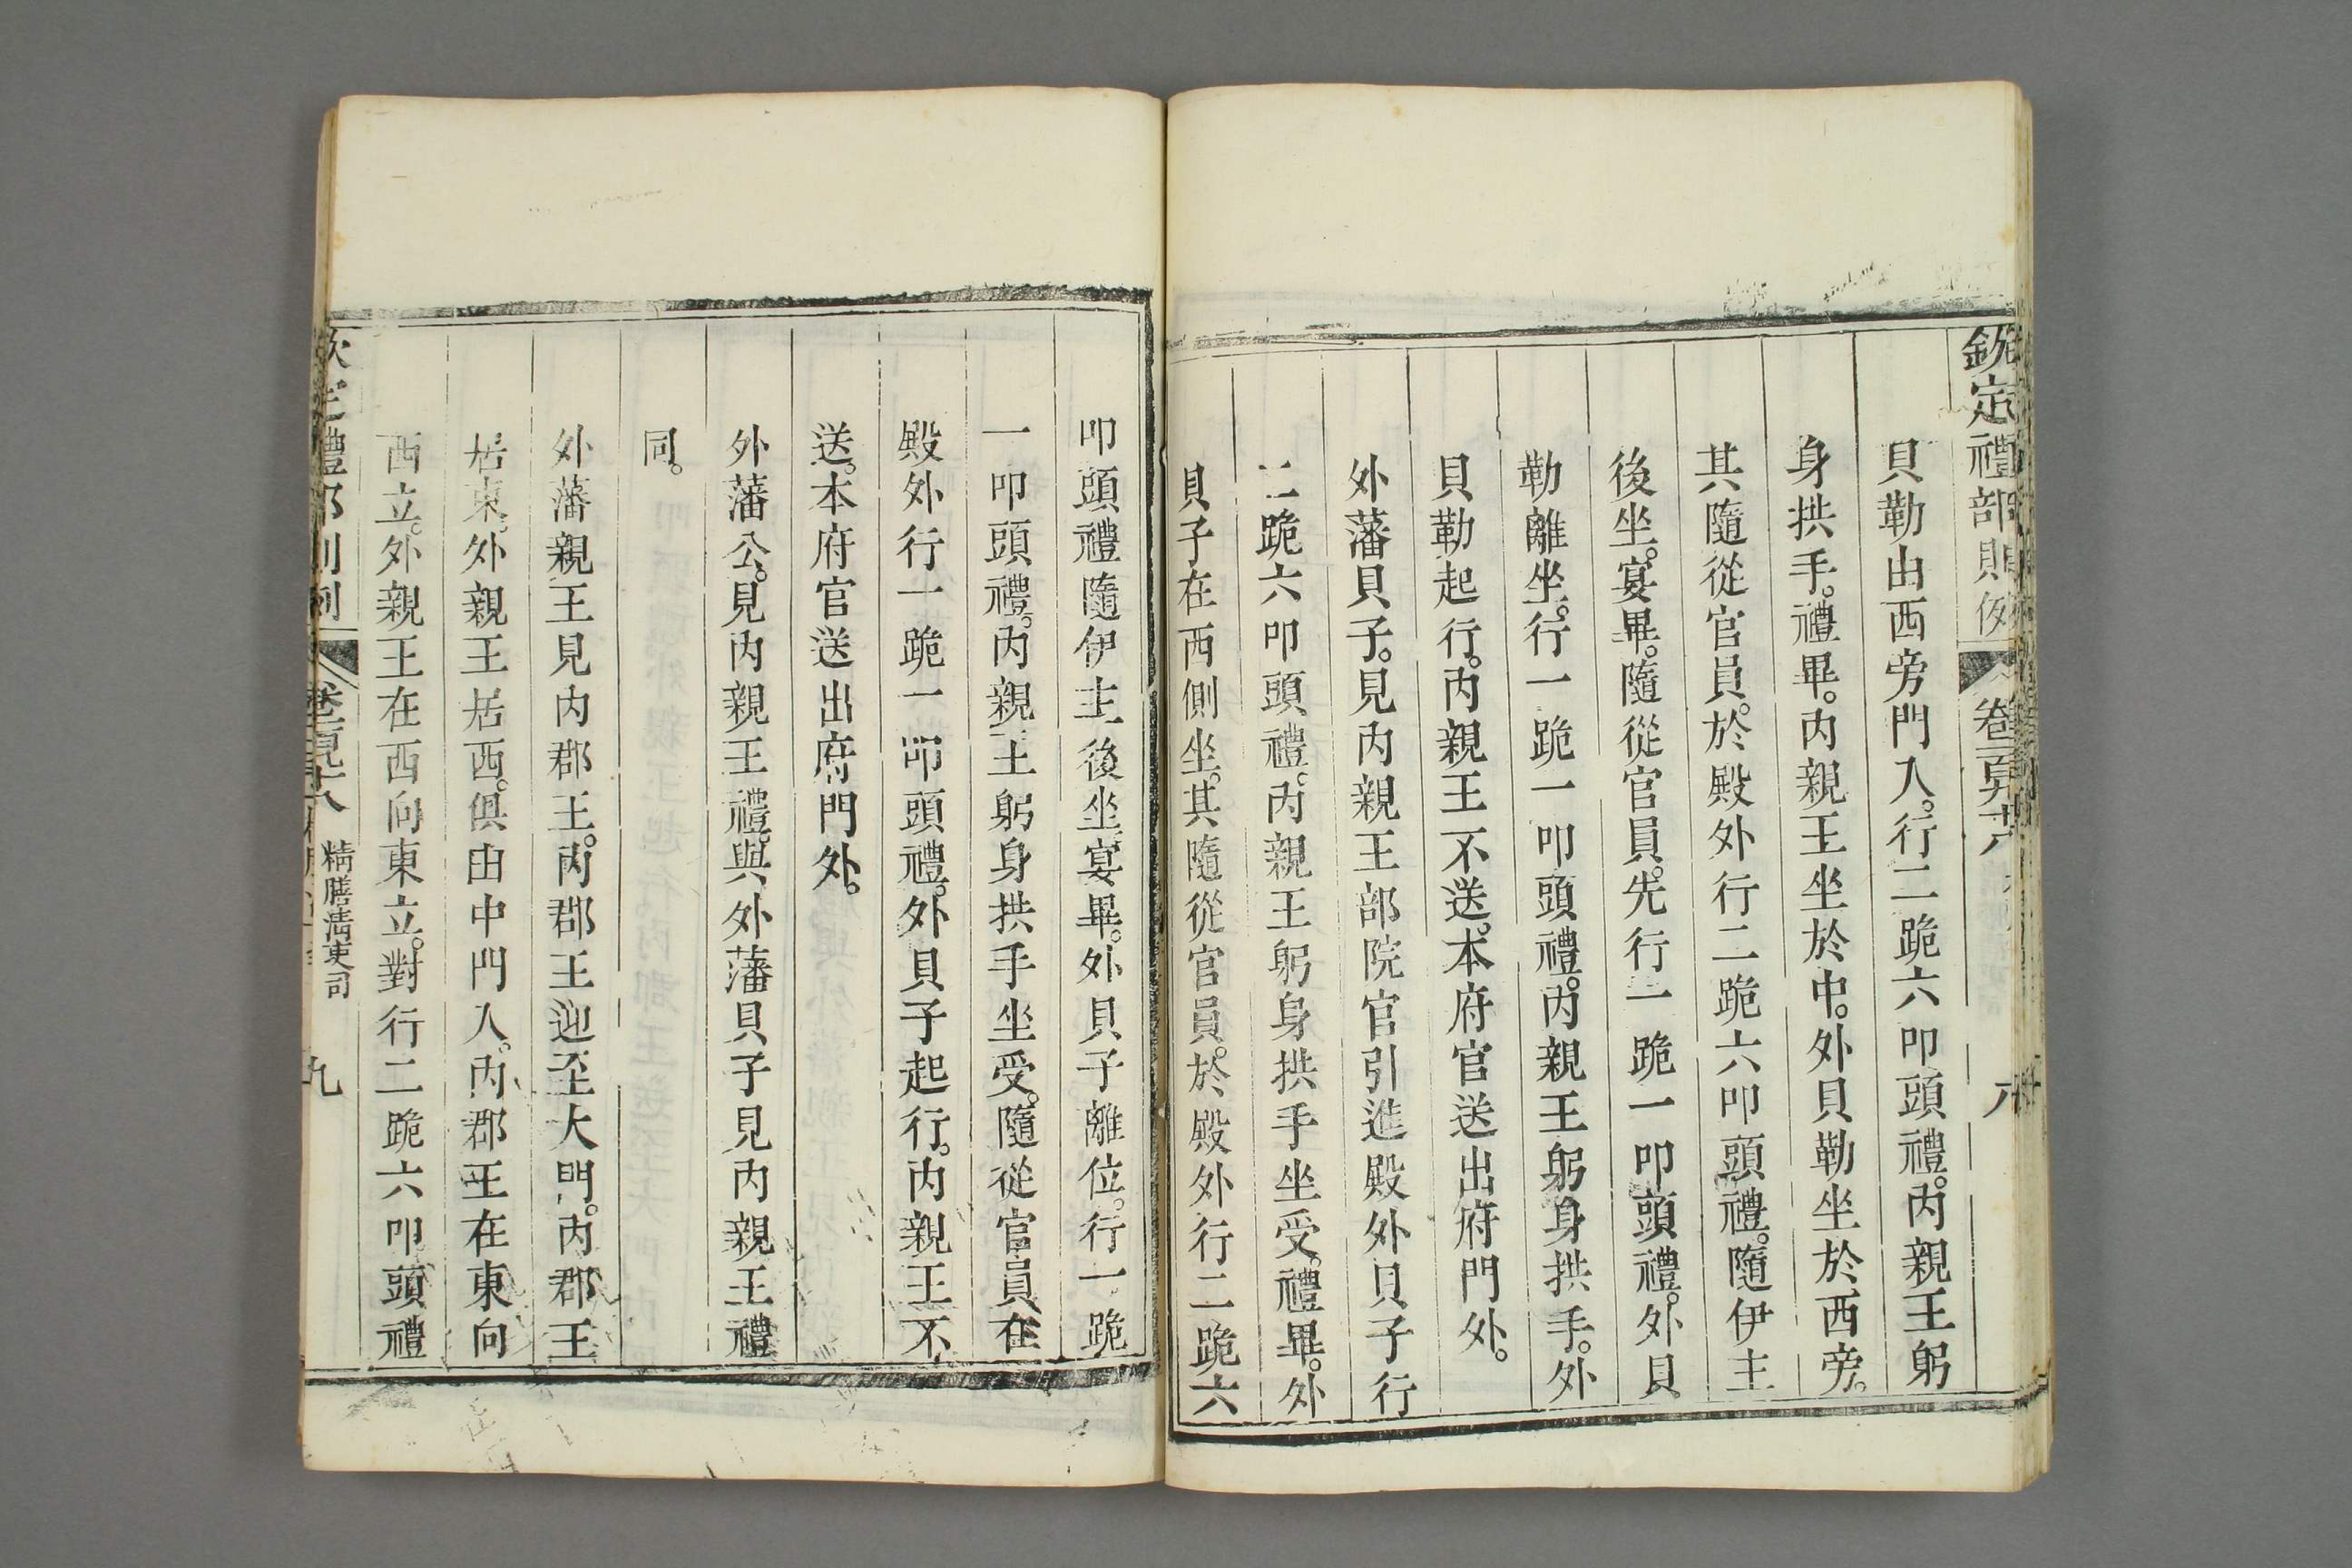 欽定禮部則例
卷一百六十八
八
貝勒由西旁門入。行二跪六叩頭禮。內親王躬
身拱手。禮畢。內親王坐於中。外貝勒坐於西旁。
其隨從官員。於殿外行二跪六叩頭禮。隨伊主
後坐。宴畢。隨從官員。先行一跪一叩頭禮。外貝
勒離坐。行一跪一叩頭禮。內親王躬身拱手。外
貝勒起行。內親王不送。本府官送出府門外。
外藩貝子。見內親王部院官引進殿外貝子行
二跪六叩頭禮。內親王躬身拱手坐受。禮畢。外
貝子在西側坐。其隨從官員。於殿外行二跪六
叩頭禮隨伊主後坐宴畢。外貝子離位。行一跪
一叩頭禮。內親王躬身拱手坐受。隨從官員在
殿外行一跪一叩頭禮。外貝子起行。內親王不
送。本府官送出府門外。
外藩公。見內親王禮與外藩貝子見內親王禮
同。
外藩親王見內郡王。內郡王迎至大門。內郡王
居東。外親王居西。俱由中門入。內郡王在東向
西立。外親王在西向東立。對行二跪六叩頭禮
精膳清吏司
九